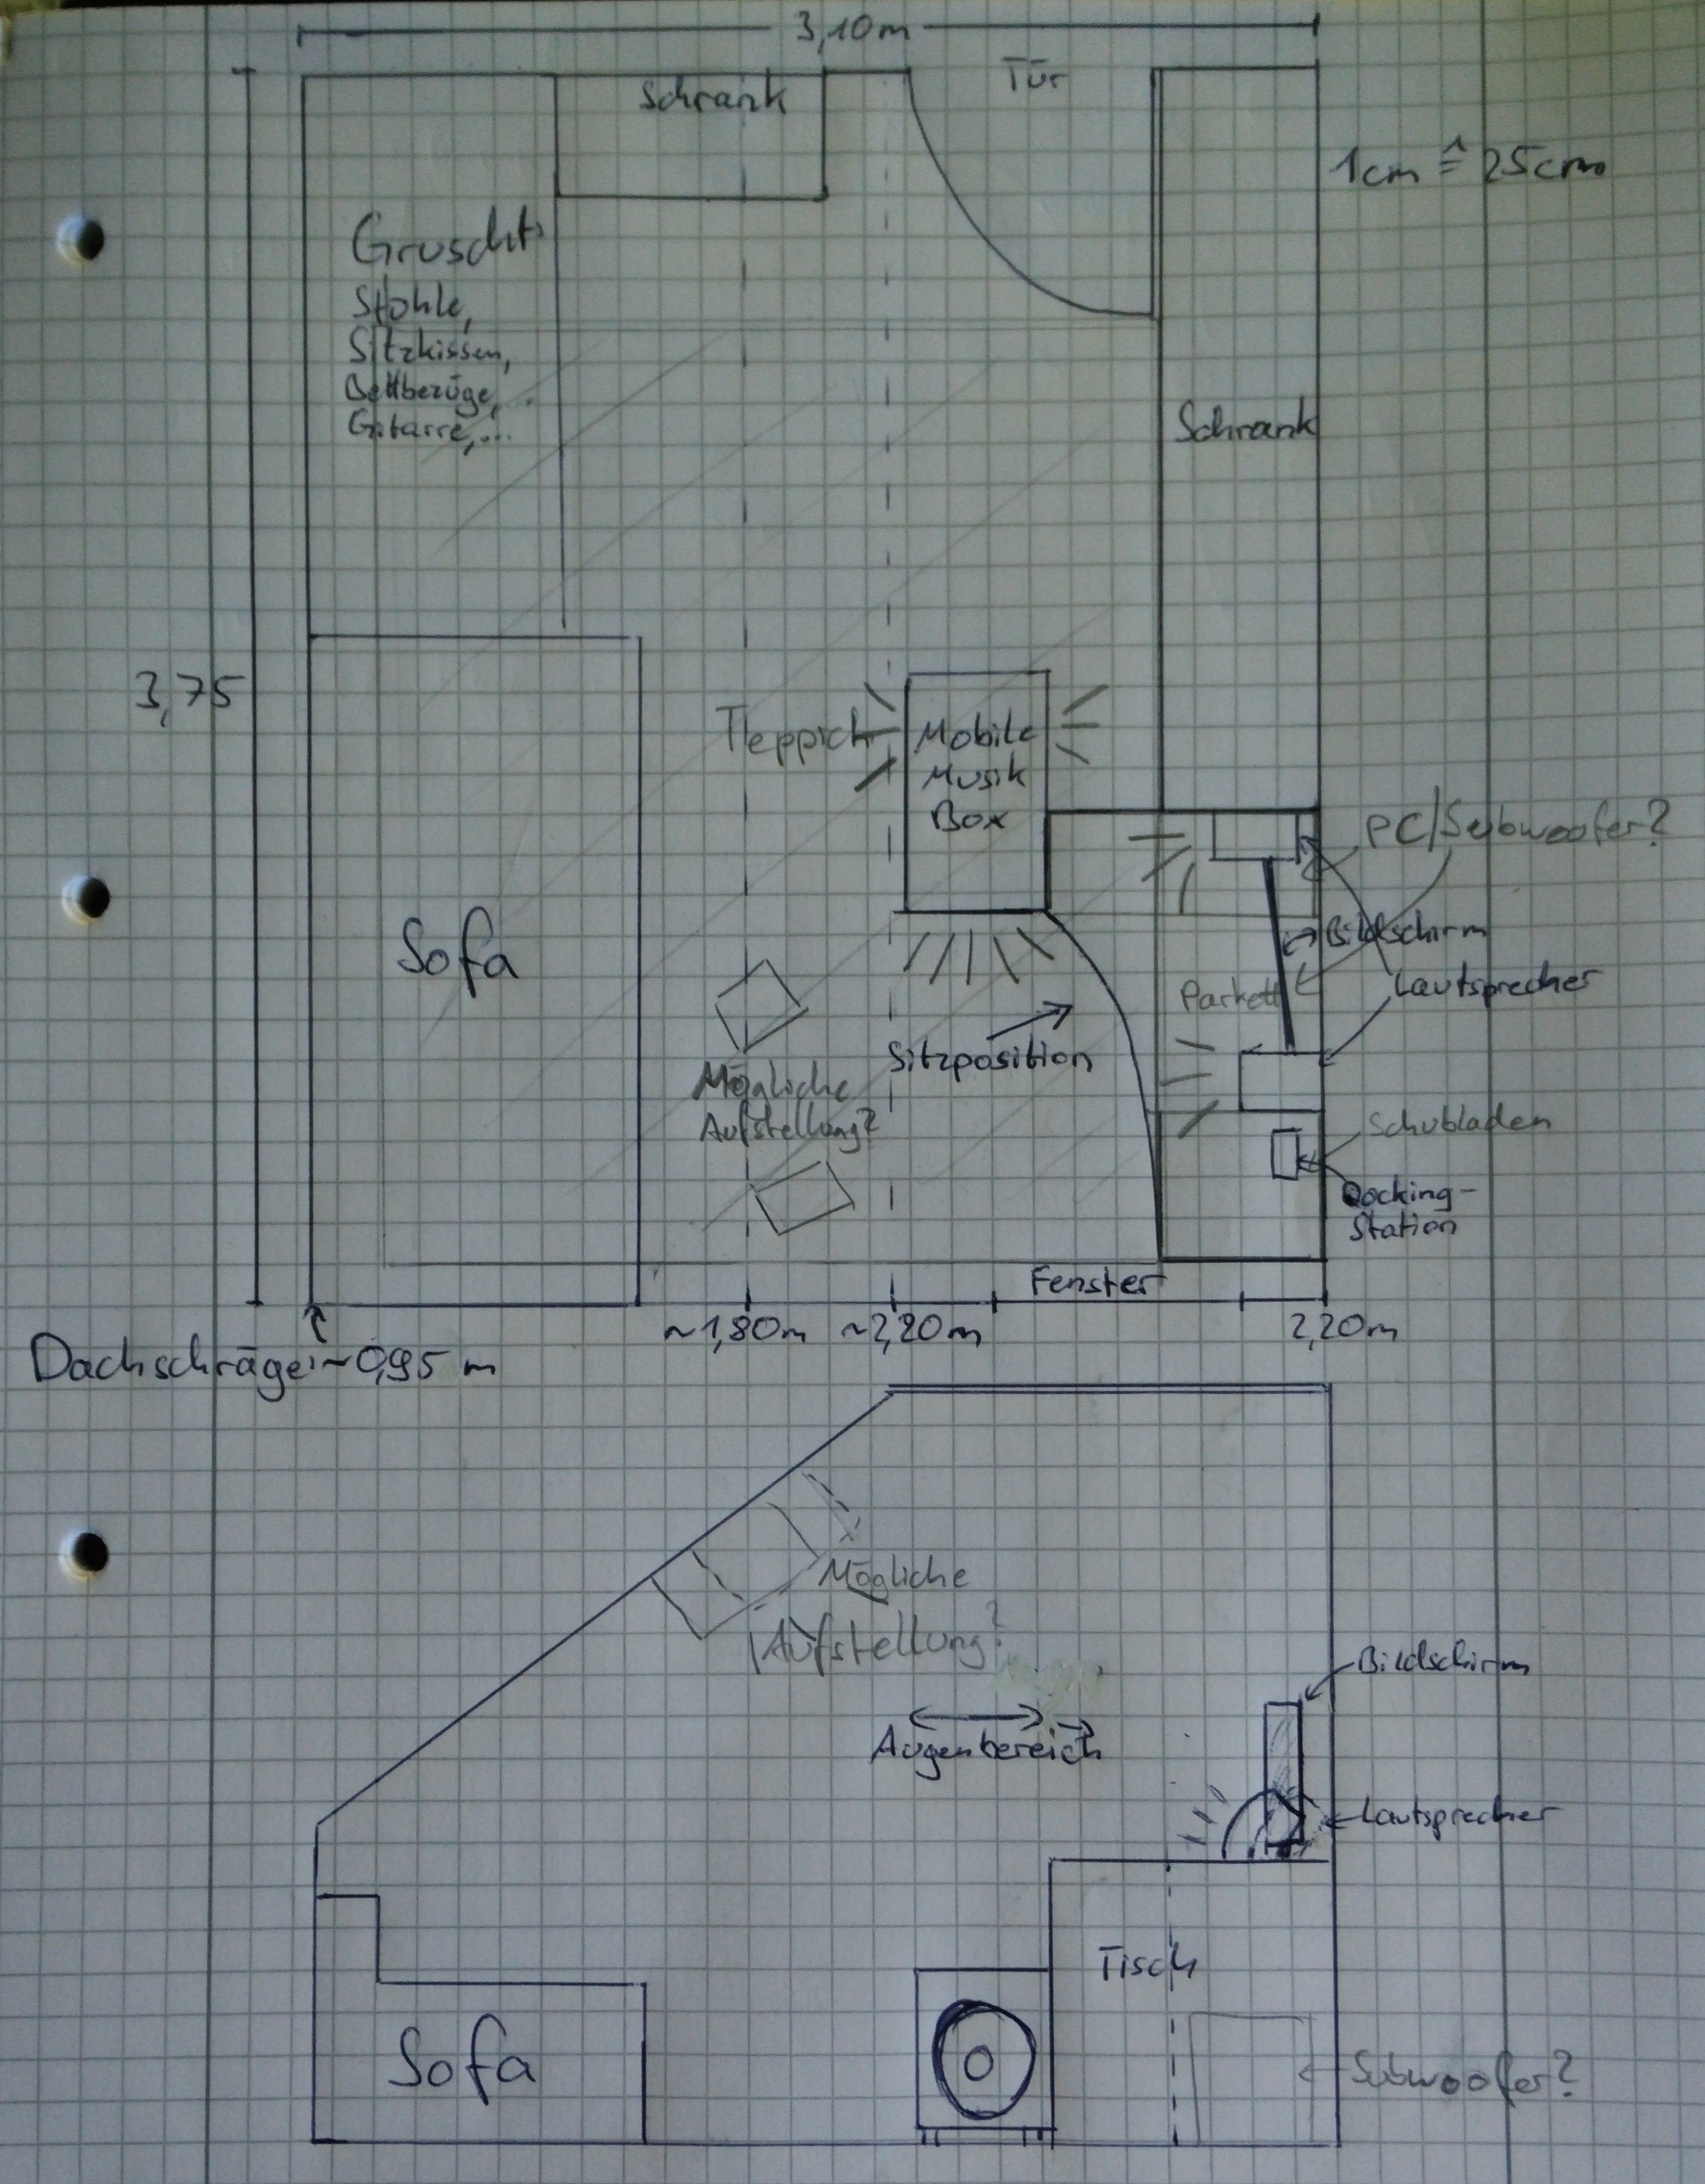 3,10m
Schrank
Tür
1cm ≙ 25cm
Gruscht:
Stühle,
Sitzkissen,
Bettbezüge,...
Gitarre,...
Schrank
3,75
Teppich
Mobile
Musik
Box
PC/Subwoofer?
Bildschirm
Sofa
Parkett
Lautsprecher
Sitzposition
Mögliche
Aufstellung?
Schubladen
Docking-
Station
Fenster
~1,80m
~2,20m
2,20m
Dachschräge: ~0,95 m
Mögliche
Aufstellung?
Bildschirm
Augenbereich
Lautsprecher
Tisch
Sofa
Subwoofer?